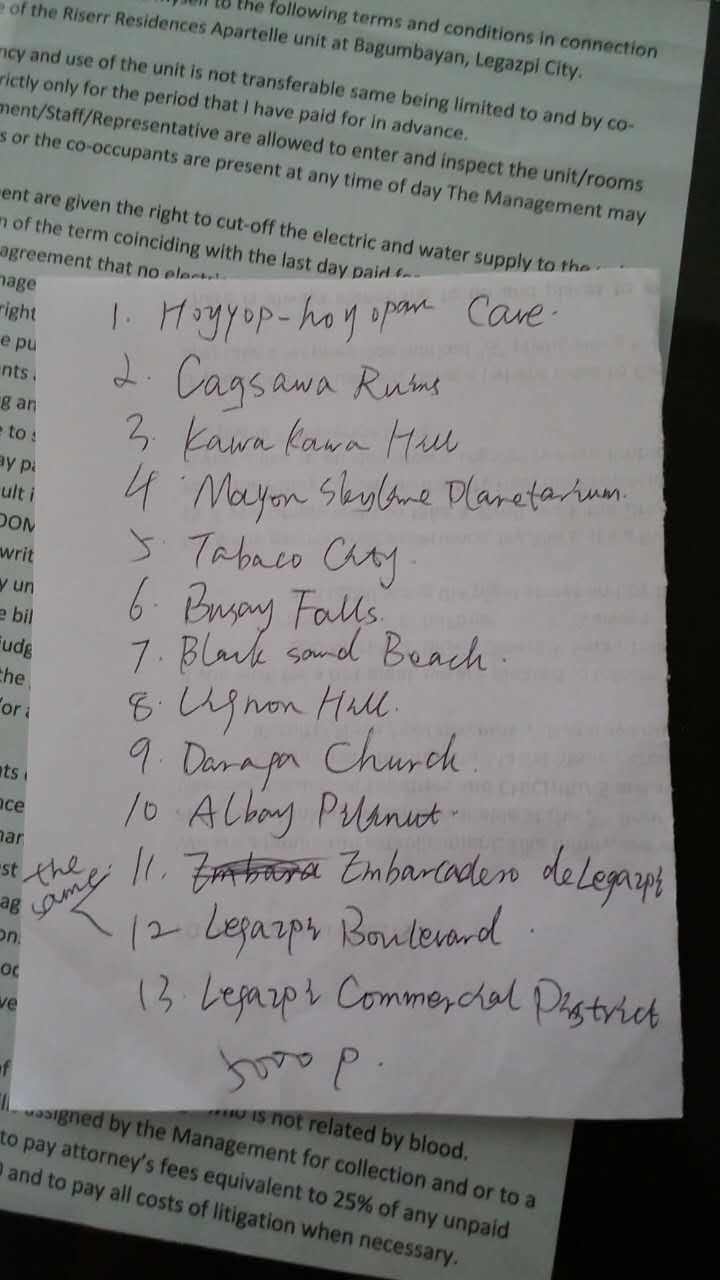 yself to the following terms and conditions in connection
e of the Riserr Residences Apartelle unit at Bagumbayan, Legazpi City.
ncy and use of the unit is not transferable same being limited to and by co-
rictly only for the period that I have paid for in advance.
ment/Staff/Representative are allowed to enter and inspect the unit/rooms
s or the co-occupants are present at any time of day The Management may
ent are given the right to cut-off the electric and water supply to the
n of the term coinciding with the last day paid
agreement that no
nage
right
e pu
nts
g an
to
ay pa
ult i
DOM
writ
y un
e bil
judg
the
/or
nts
nce
nar
st
ag
on.
oc
ve
1. Hoyyop-hoyopan Cave.
2. Cagsawa Ruins
3. Kawa Kawa Hill
4 Mayon Skyline Planetarium.
5. Tabaco City.
6. Busay Falls.
7. Black sand Beach.
8. Lignon Hill.
9. Darapa Church.
10 Albay Pilinut.
the same 11. Embarcadero de Legazpi
12 Legazpi Boulevard.
13. Legazpi Commercial District
5000 P.
is not related by blood.
assigned by the Management for collection and or to a
to pay attorney's fees equivalent to 25% of any unpaid
) and to pay all costs of litigation when necessary.